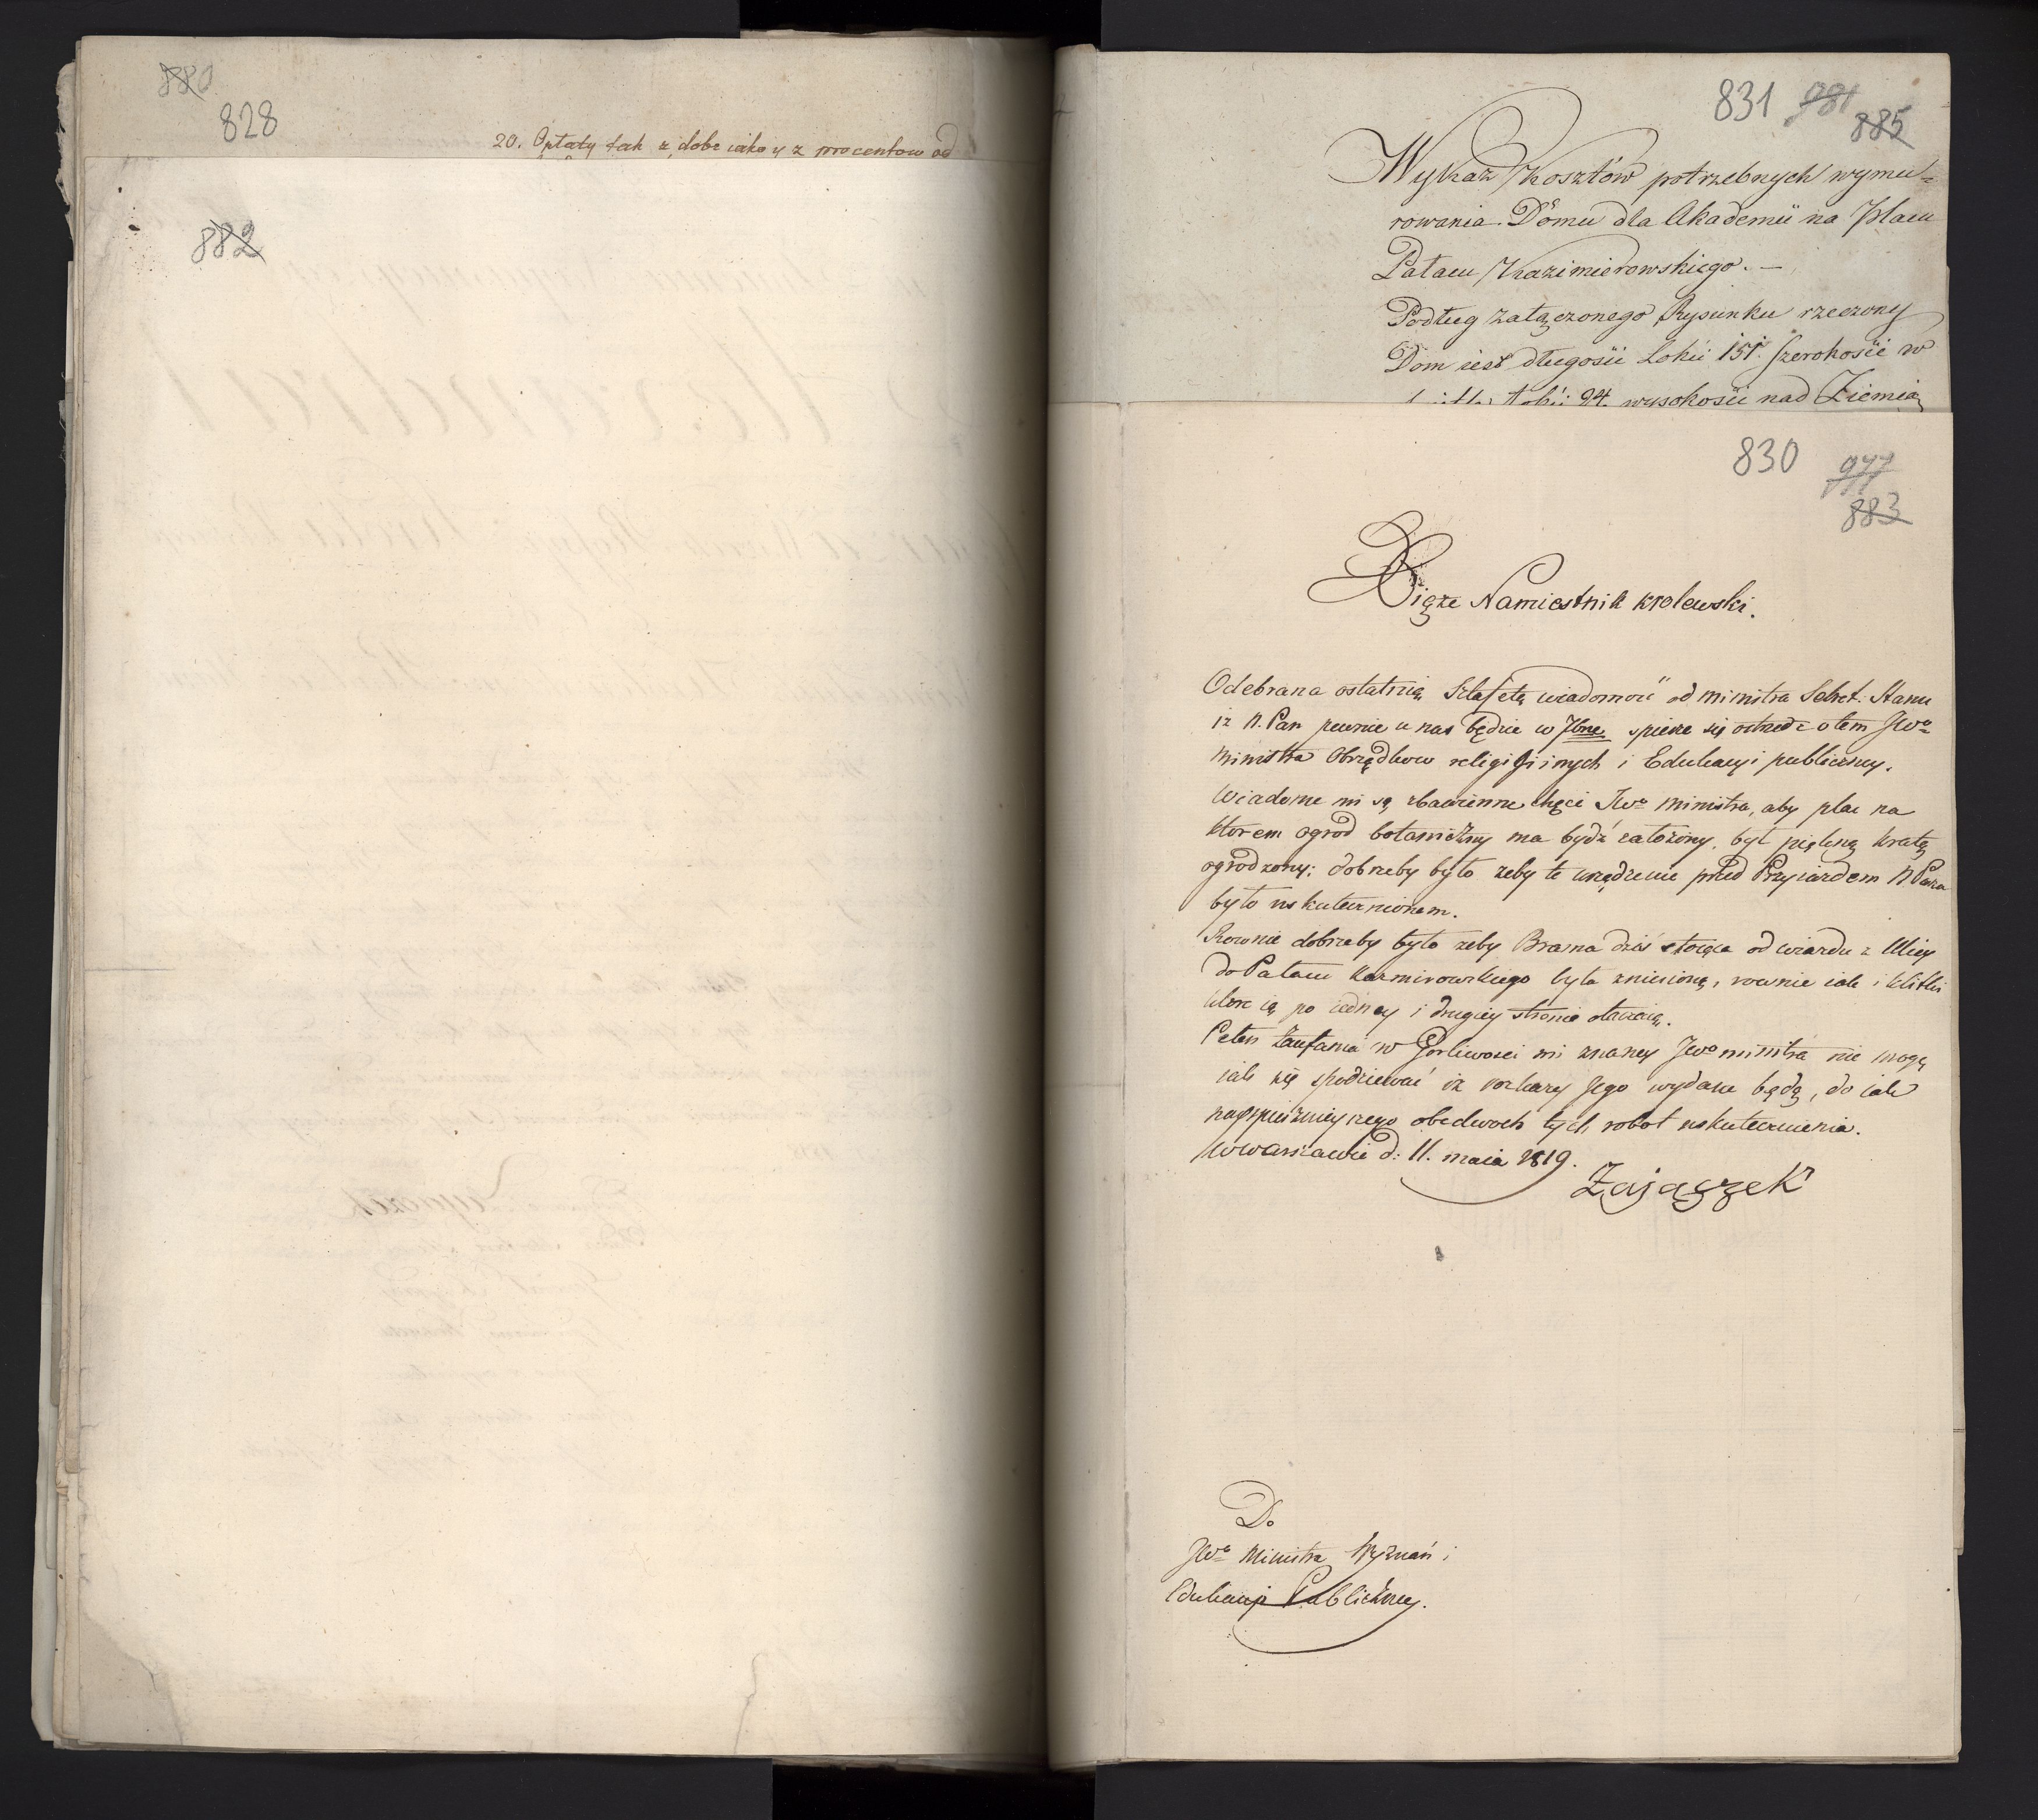 880
828
20. Opłaty tak z dobr iako y z procentow od
882
831 981
885
Wykaz Kosztów potrzebnych wymu=
rowania Domu dla Akademii na Placu
Pałacu Kazimierowskiego. —
Podług załączonego Rysunku rzeczony
Dom iest długosii Łokii 151. szerokosii w
Łokii 24. wysokosii nad Ziemią
830 977
883
Xiąże Namiestnik krolewski.
Odebrana ostatnią Sztafetą wiadomość od ministra Sekret. Stanu
iż N. Pan pewnie u nas będzie w 7bre spieszę się ostrzedz o tem JWo
ministra Obrządkow religijinych i Edukacyi publiczney.
Wiadome mi są zbawienne chęci JWo ministra, aby plac na
ktorem ogrod botaniczny ma bydź założony, był piękną kratą
ogrodzony; dobrzeby było żeby te urządzenie przed Przyiazdem N. Pana
było uskutecznionem.
Rownie dobrzeby było żeby Brama dziś stoiąca od wiazdu z Ulicy
do Pałacu Kazmirowskiego była zniesioną, rownie iak i klitki
ktore ią po iedney i drugiey stronie otaczaią.
Pełen Zaufania w Gorliwosci mi znaney JWo ministra nie mogę
iak się spodziewać iż rozkazy Jego wydane będą, do iak
nayspiesznieyszego obedwoch tych robot uskutecznienia.
w Warszawie d: 11. maia 1819.
Zajączek
Do
JWo Ministra Wyznań i
Edukacyi Publiczney.